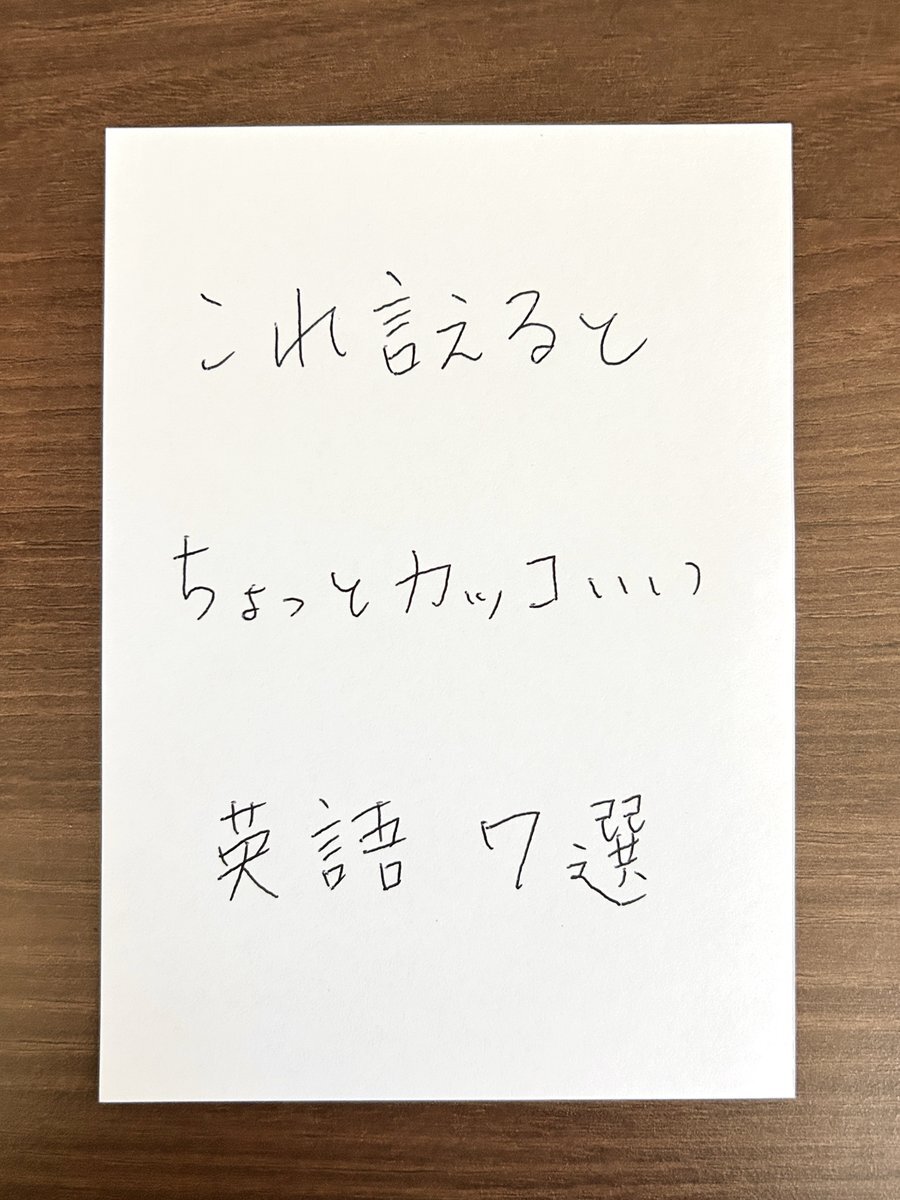 これ言えると
ちょっとカッコいい
英語 7選